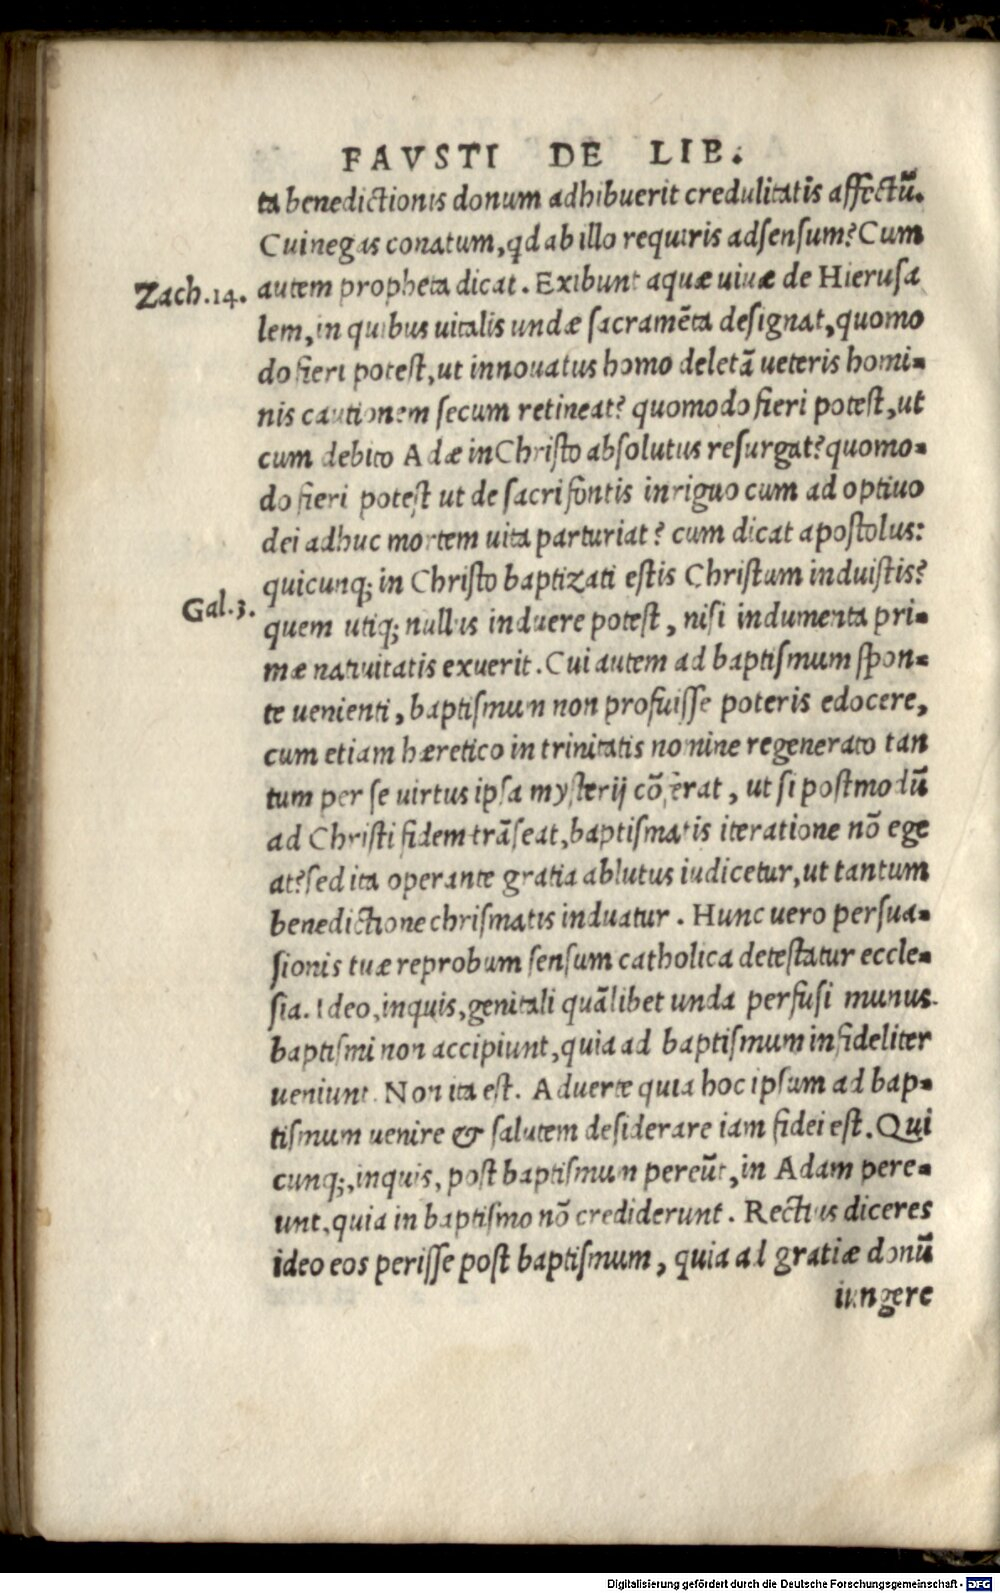 FAVSTI DE LIB.
ta benedictionis donum adhibuerit credulitatis affectũ.
Cui negas conatum, qd ab illo requiris adsensum? Cum
Zach.14. autem propheta dicat. Exibunt aquæ uiuæ de Hierusa
lem, in quibus uitalis undæ sacramẽta designat, quomo
do fieri potest, ut innouatus homo deletã ueteris homi-
nis cautionem secum retineat? quomodo fieri potest, ut
cum debito Adæ in Christo absolutus resurgat? quomo-
do fieri potest ut de sacri fontis inriguo cum adoptiuo
dei adhuc mortem uita parturiat? cum dicat apostolus:
quicunq; in Christo baptizati estis Christum induistis?
Gal.3. quem utiq; nullus induere potest, nisi indumenta pri-
mæ natiuitatis exuerit. Cui autem ad baptismum spon-
te uenienti, baptismum non profuisse poteris edocere,
cum etiam hæretico in trinitatis nomine regenerato tan
tum per se uirtus ipsa mysterij cõferat, ut si postmodũ
ad Christi fidem trãseat, baptismatis iteratione nõ ege
at? sed ita operante gratia ablutus iudicetur, ut tantum
benedictione chrismatis induatur. Hunc uero persua-
sionis tuæ reprobum sensum catholica detestatur eccle-
sia. Ideo, inquis, genitali quãlibet unda perfusi munus
baptismi non accipiunt, quia ad baptismum infideliter
ueniunt. Non ita est. Aduerte quia hoc ipsum ad bap-
tismum uenire & salutem desiderare iam fidei est. Qui
cunq;, inquis, post baptismum pereũt, in Adam pere-
unt, quia in baptismo nõ crediderunt. Rectius diceres
ideo eos perisse post baptismum, quia ad gratiæ donũ
iungere
Digitalisierung gefördert durch die Deutsche Forschungsgemeinschaft - DFG